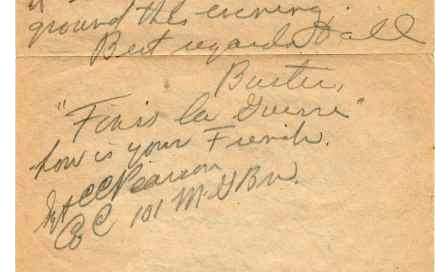 ground this evening.
Best regards to all
Buster,
"Finis la Guerre"
how is your French.
Sgt CC Pearson
Co C 101 M.G Bn.